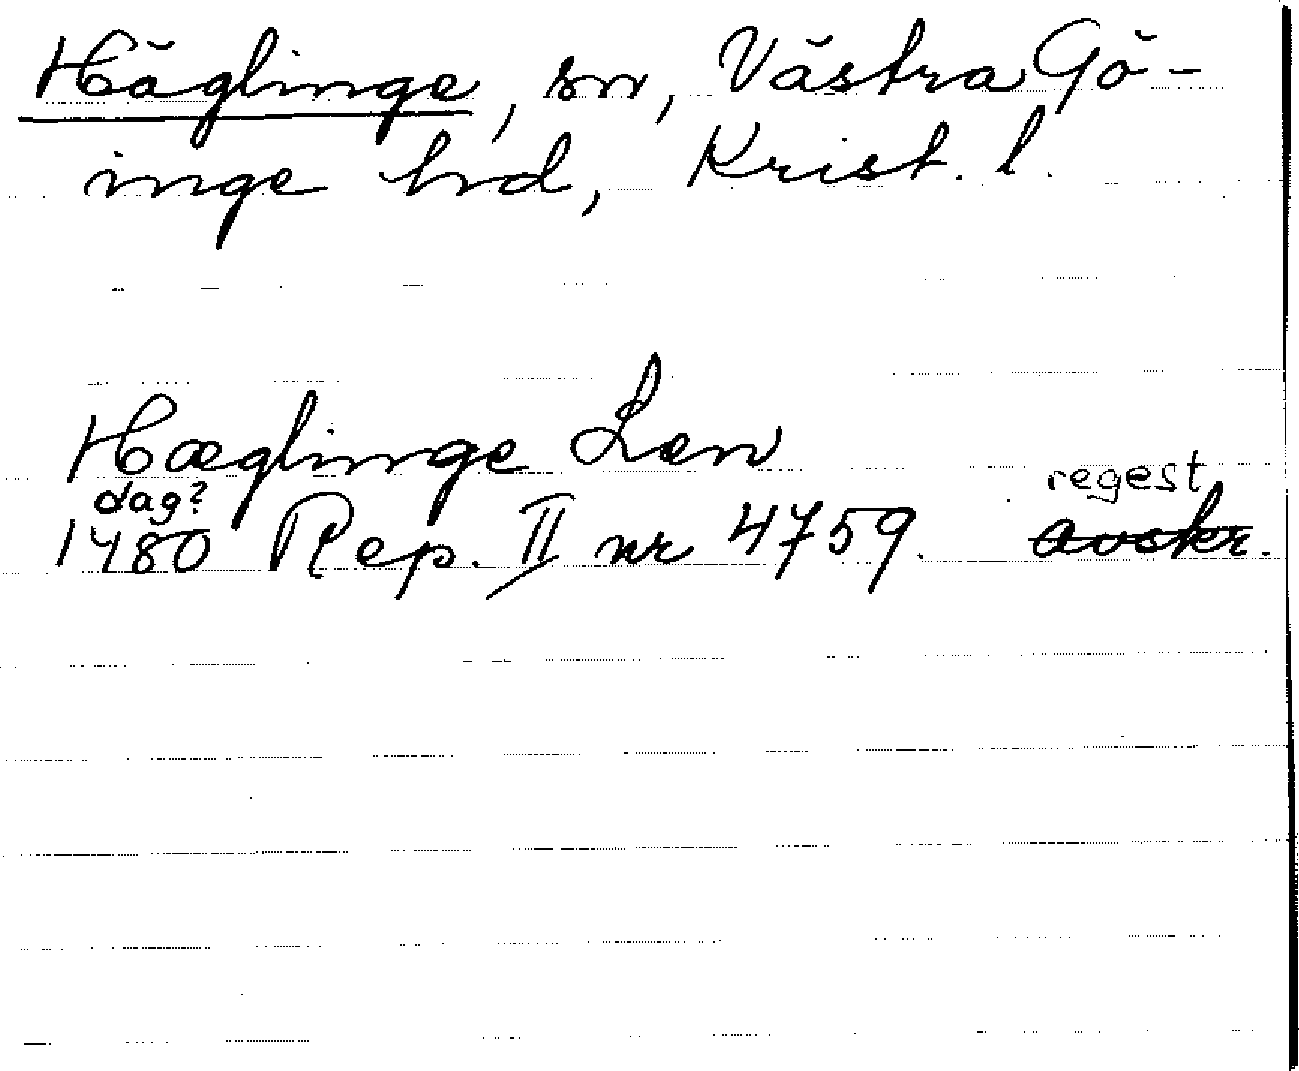 Häglinge, sn, Västra Gö-
inge hrd, Krist. l.
Hæglinge Len
dag? regest
1480 Rep. II nr 4759. avskr.